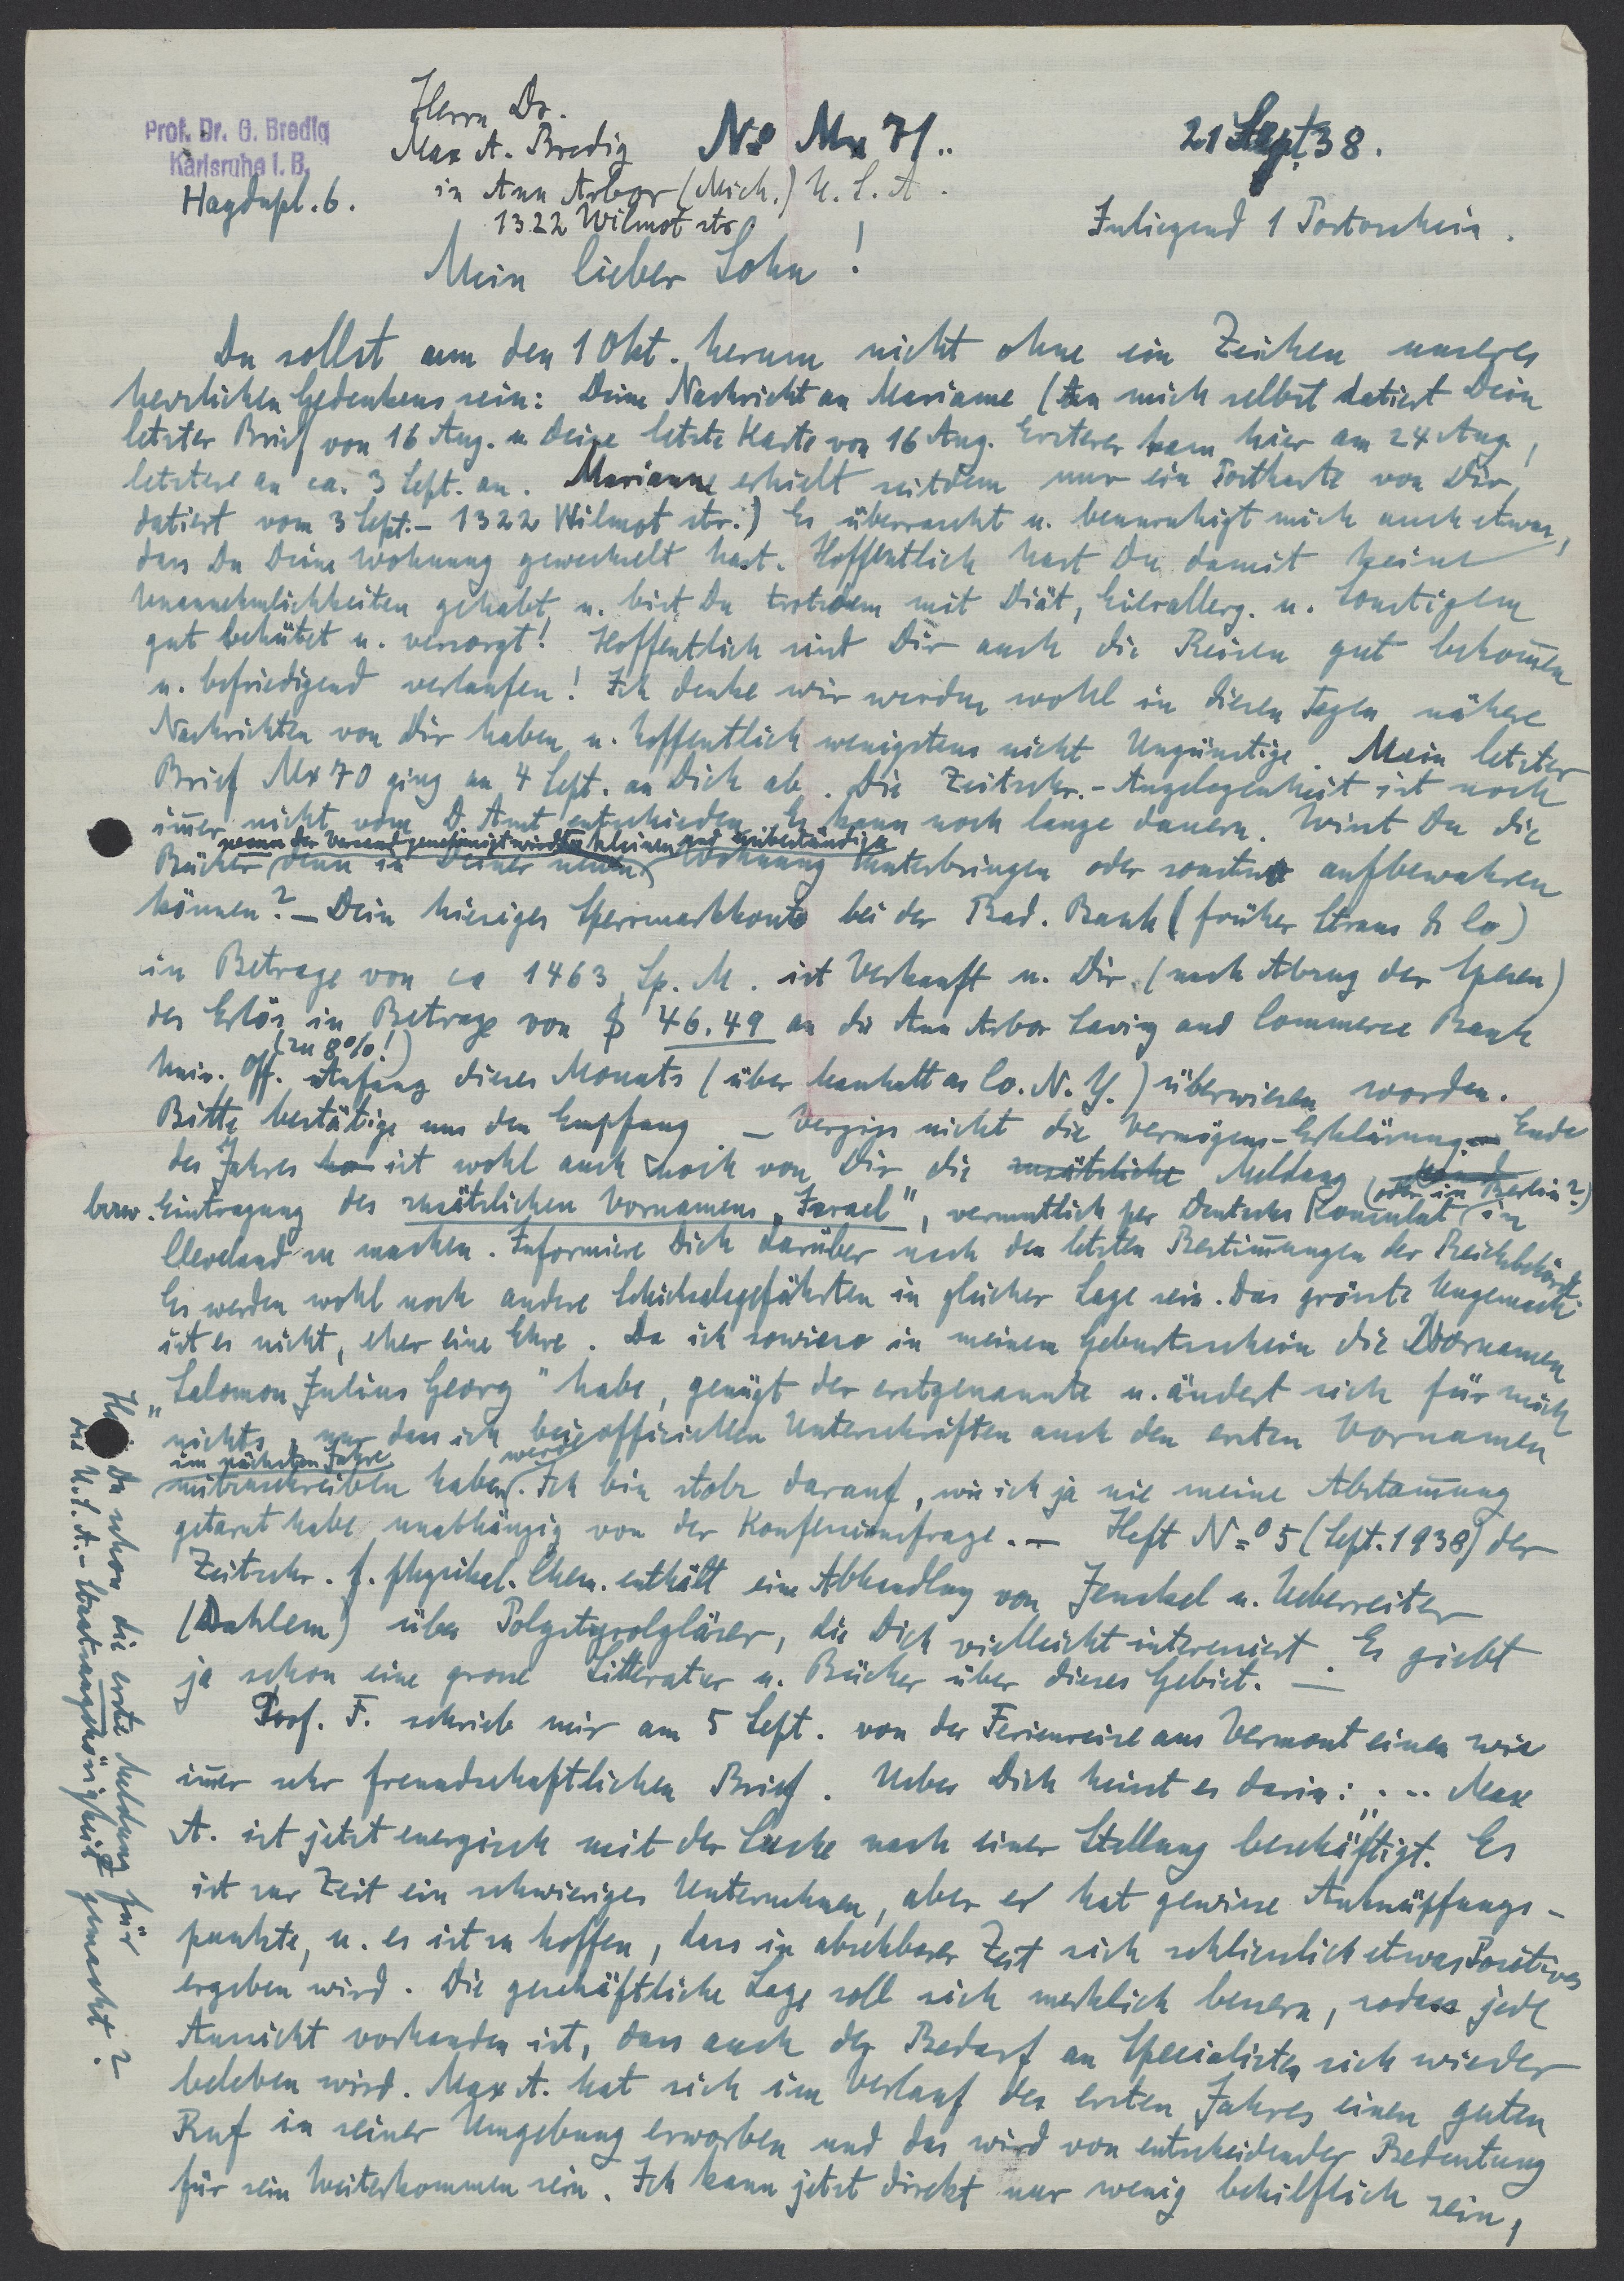 Prof. Dr. G. Bredig
Karlsruhe i. B.
Haydnpl. 6.
Herrn Dr.
Max A. Bredig
in Ann Arbor (Mich.) U. S. A.
1322 Wilmot str.
No Mx 71..
21 Sept 38.
Inliegend 1 Portoschein.
Mein lieber Sohn!
Du sollst um den 1 Okt. herum nicht ohne ein Zeichen unseres
herzlichen Gedenkens sein: Deine Nachricht an Marianne (An mich selbst datiert Dein
letzter Brief von 16 Aug. u. Deine letzte Karte von 16 Aug. Ersterer kam hier am 24 Aug,
letztere an ca. 3 Sept. an. Marianne erhielt seitdem nur ein Postkarte von Dir,
datiert vom 3 Sept. – 1322 Wilmot str.) Es überrascht u. beunruhigt mich auch etwas,
dass Du Deine Wohnung gewechselt hast. Hoffentlich hast Du damit keine
Unannehmlichkeiten gehabt, u. bist Du trotzdem mit Diät, Eierallerg. u. Sonstigem
gut behütet u. versorgt! Hoffentlich sind Dir auch die Reisen gut bekom̄en
u. befriedigend verlaufen! Ich denke wir werden wohl in diesen Tagen nähere
Nachrichten von Dir haben, u. hoffentlich wenigstens nicht Ungünstige. Mein letzter
Brief Mx 70 ging an 4 Sept. an Dich ab. Die Zeitschr.-Angelegenheit ist noch
im̄er nicht vom D. Amt entschieden. Es kann noch lange dauern. Wirst Du die
wenn der Versand genehmigt wird kleinen und unbeständige
Bücher denn in Deiner neuen Wohnung unterbringen oder sonst aufbewahren
können? – Dein hiesiges Sperrmarkkonto bei der Bad. Bank (früher Straus & Co)
in Betrage von ca 1463 Sp. M. ist Verkauft u. Dir (nach Abzug der Spesen)
der Erlös in Betrage von $ 46.49 an die Ann Arbor Saving and Commerce Bank
(zu 8%!)
Univ. Off. Anfang dieses Monats (über Manhattan Co. N. Y.) überwiesen worden.
Bitte bestätige uns den Empfang. – Vergiss nicht die Vermögens-Erklärung. Ende
des Jahres ist wohl auch noch von Dir die zusätzliche Meldung
(oder in Berlin?)
bezw. Eintragung des zusätzlichen Vornamens „Israel", vermutlich per Deutsches Konsulat in
Cleveland zu machen. Informiere Dich darüber nach den letzten Bestim̄ungen der Reichsbehörde.
Es werden wohl noch andere Schicksalsgefährten in gleicher Lage sein. Das grösste Ungemach
ist es nicht, eher eine Ehre. Da ich sowieso in meinem Geburtsschein die Vornamen
„Salomon Julius Georg" habe, genügt der erstgenannte u. ändert sich für mich
nichts, nur dass ich bei officiellen Unterschriften auch den ersten Vornamen
im nächsten Jahre werde
mitzuschreiben haben. Ich bin stolz darauf, wie ich ja nie meine Abstam̄ung
getarnt habe, unabhängig von der Konfessionsfrage. – Heft No 5 (Sept. 1938) der
Zeitschr. f. physikal. Chem. enthält eine Abhandlung von Jenckel u. Ueberreiter
(Dahlem) über Polystyrolgläser, die Dich vielleicht interessiert. Es giebt
ja schon eine grosse Litteratur u. Bücher über dieses Gebiet. –
Prof. F. schrieb mir am 5 Sept. von der Ferienreise aus Vermont einen wie
im̄er sehr freundschaftlichen Brief. Ueber Dich heisst es darin: .... Max
A. ist jetzt energisch mit der Suche nach einer Stellung beschäftigt. Es
ist zur Zeit ein schwieriges Unternehmen, aber er hat gewisse Anknüpfungs-
punkte, u. es ist zu hoffen, dass in absehbarer Zeit sich schliesslich etwas Positives
ergeben wird. Die geschäftliche Lage soll sich merklich bessern, sodass jede
Aussicht vorhanden ist, dass auch der Bedarf an Specialisten sich wieder
beleben wird. Max A. hat sich im Verlauf des ersten Jahres einen guten
Ruf in seiner Umgebung erworben und das wird von entscheidender Bedeutung
für sein Weiterkommen sein. Ich kann jetzt direkt nur wenig behilflich sein,
Du schon die erste Meldung für
die U.S.A.-Staatsangehörigkeit gemacht?